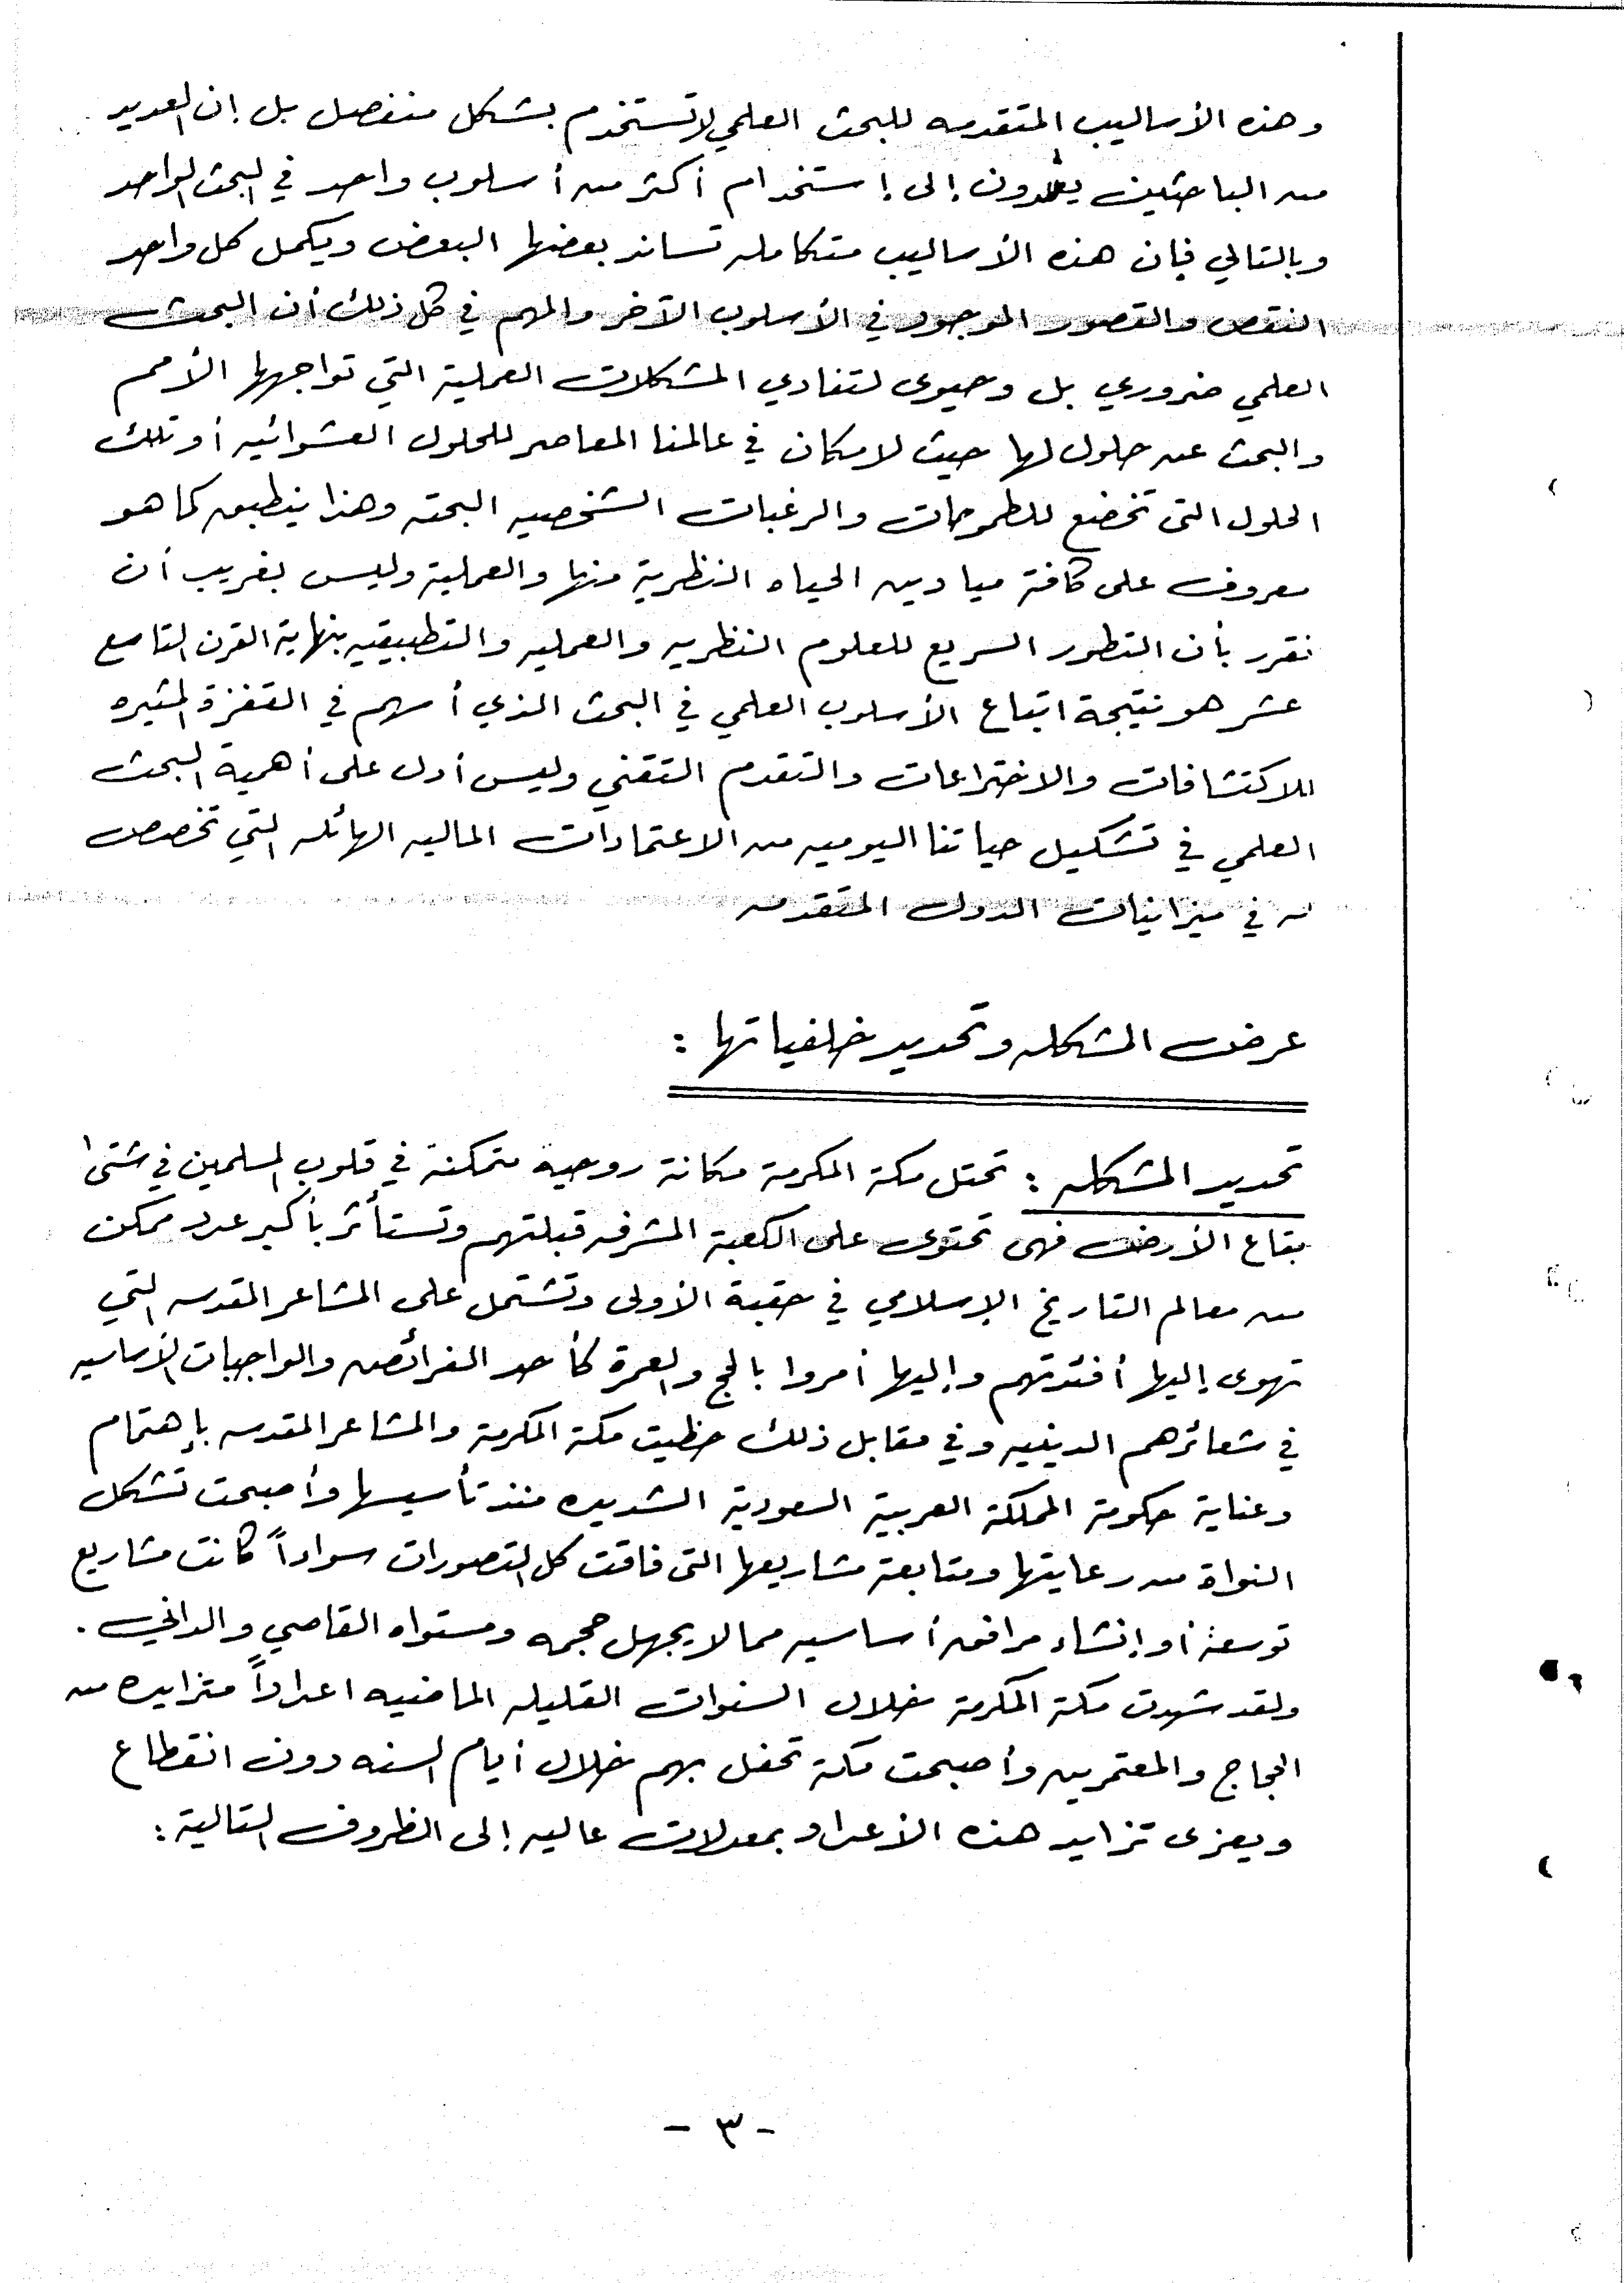 وهذه الأساليب المتقدمه للبحث العلمي لا تستخدم بشكل منفصل بل إن العديد
من الباحثين يعمدون إلى إستخدام أكثر من أسلوب واحد في البحث الواحد
وبالتالي فإن هذه الأساليب متكامله تساند بعضها البعض ويكمل كل واحد
النقص والقصور الموجود في الأسلوب الآخر والمهم في كل ذلك أن البحث
العلمي ضروري بل وحيوى لتفادي المشكلات العملية التي تواجهها الأمم
والبحث عن حلول لها حيث لامكان في عالمنا المعاصر للحلول العشوائيه أو تلك
الحلول التى تخضع للطموحات والرغبات الشخصيه البحته وهذا ينطبق كما هو
معروف على كافة ميادين الحياه النظرية منها والعملية وليس بغريب أن
نقرر بأن التطور السريع للعلوم النظريه والعمليه والتطبيقيه بنهاية القرن التاسع
عشر هو نتيجة اتباع الأسلوب العلمي في البحث الذي أسهم في القفزة المثيره
للاكتشافات والاختراعات والتقدم التقني وليس أدل على أهمية البحث
العلمي في تشكيل حياتنا اليوميه من الاعتمادات الماليه الهائله التي تخصص
له في ميزانيات الدول المتقدمه
عرض المشكله وتحديد خلفياتها :
تحديد المشكله : تحتل مكة المكرمة مكانة روحية متمكنة في قلوب المسلمين في شتى
بقاع الأرض فهى تحتوى على الكعبة المشرفه قبلتهم وتستأثر بأكبر عدد ممكن
من معالم التاريخ الإسلامي في حقبة الأولى وتشتمل على المشاعر المقدسه التي
تهوى إليها أفئدتهم وإليها أمروا بالحج والعمرة كأحد الفرائض والواجبات الأساسيه
في شعائرهم الدينيه وفي مقابل ذلك حظيت مكة المكرمة والمشاعر المقدسه بإهتمام
وعناية حكومة المملكة العربية السعودية الشديده منذ تأسيسها وأصبحت تشكل
النواة من رعايتها ومتابعة مشاريعها التى فاقت كل التصورات سواداً كانت مشاريع
توسعة أو إنشاء مرافق أساسيه مما لا يجهل حجمه ومستواه القاصي والداني .
ولقد شهدت مكة المكرمة خلال السنوات القليله الماضيه اعداداً متزايده من
الحجاج والمعتمرين وأصبحت مكة تحفل بهم خلال أيام السنه دون انقطاع
ويعزى تزايد هذه الأعداد بمعدلات عاليه إلى الظروف التالية :
- ٣ -